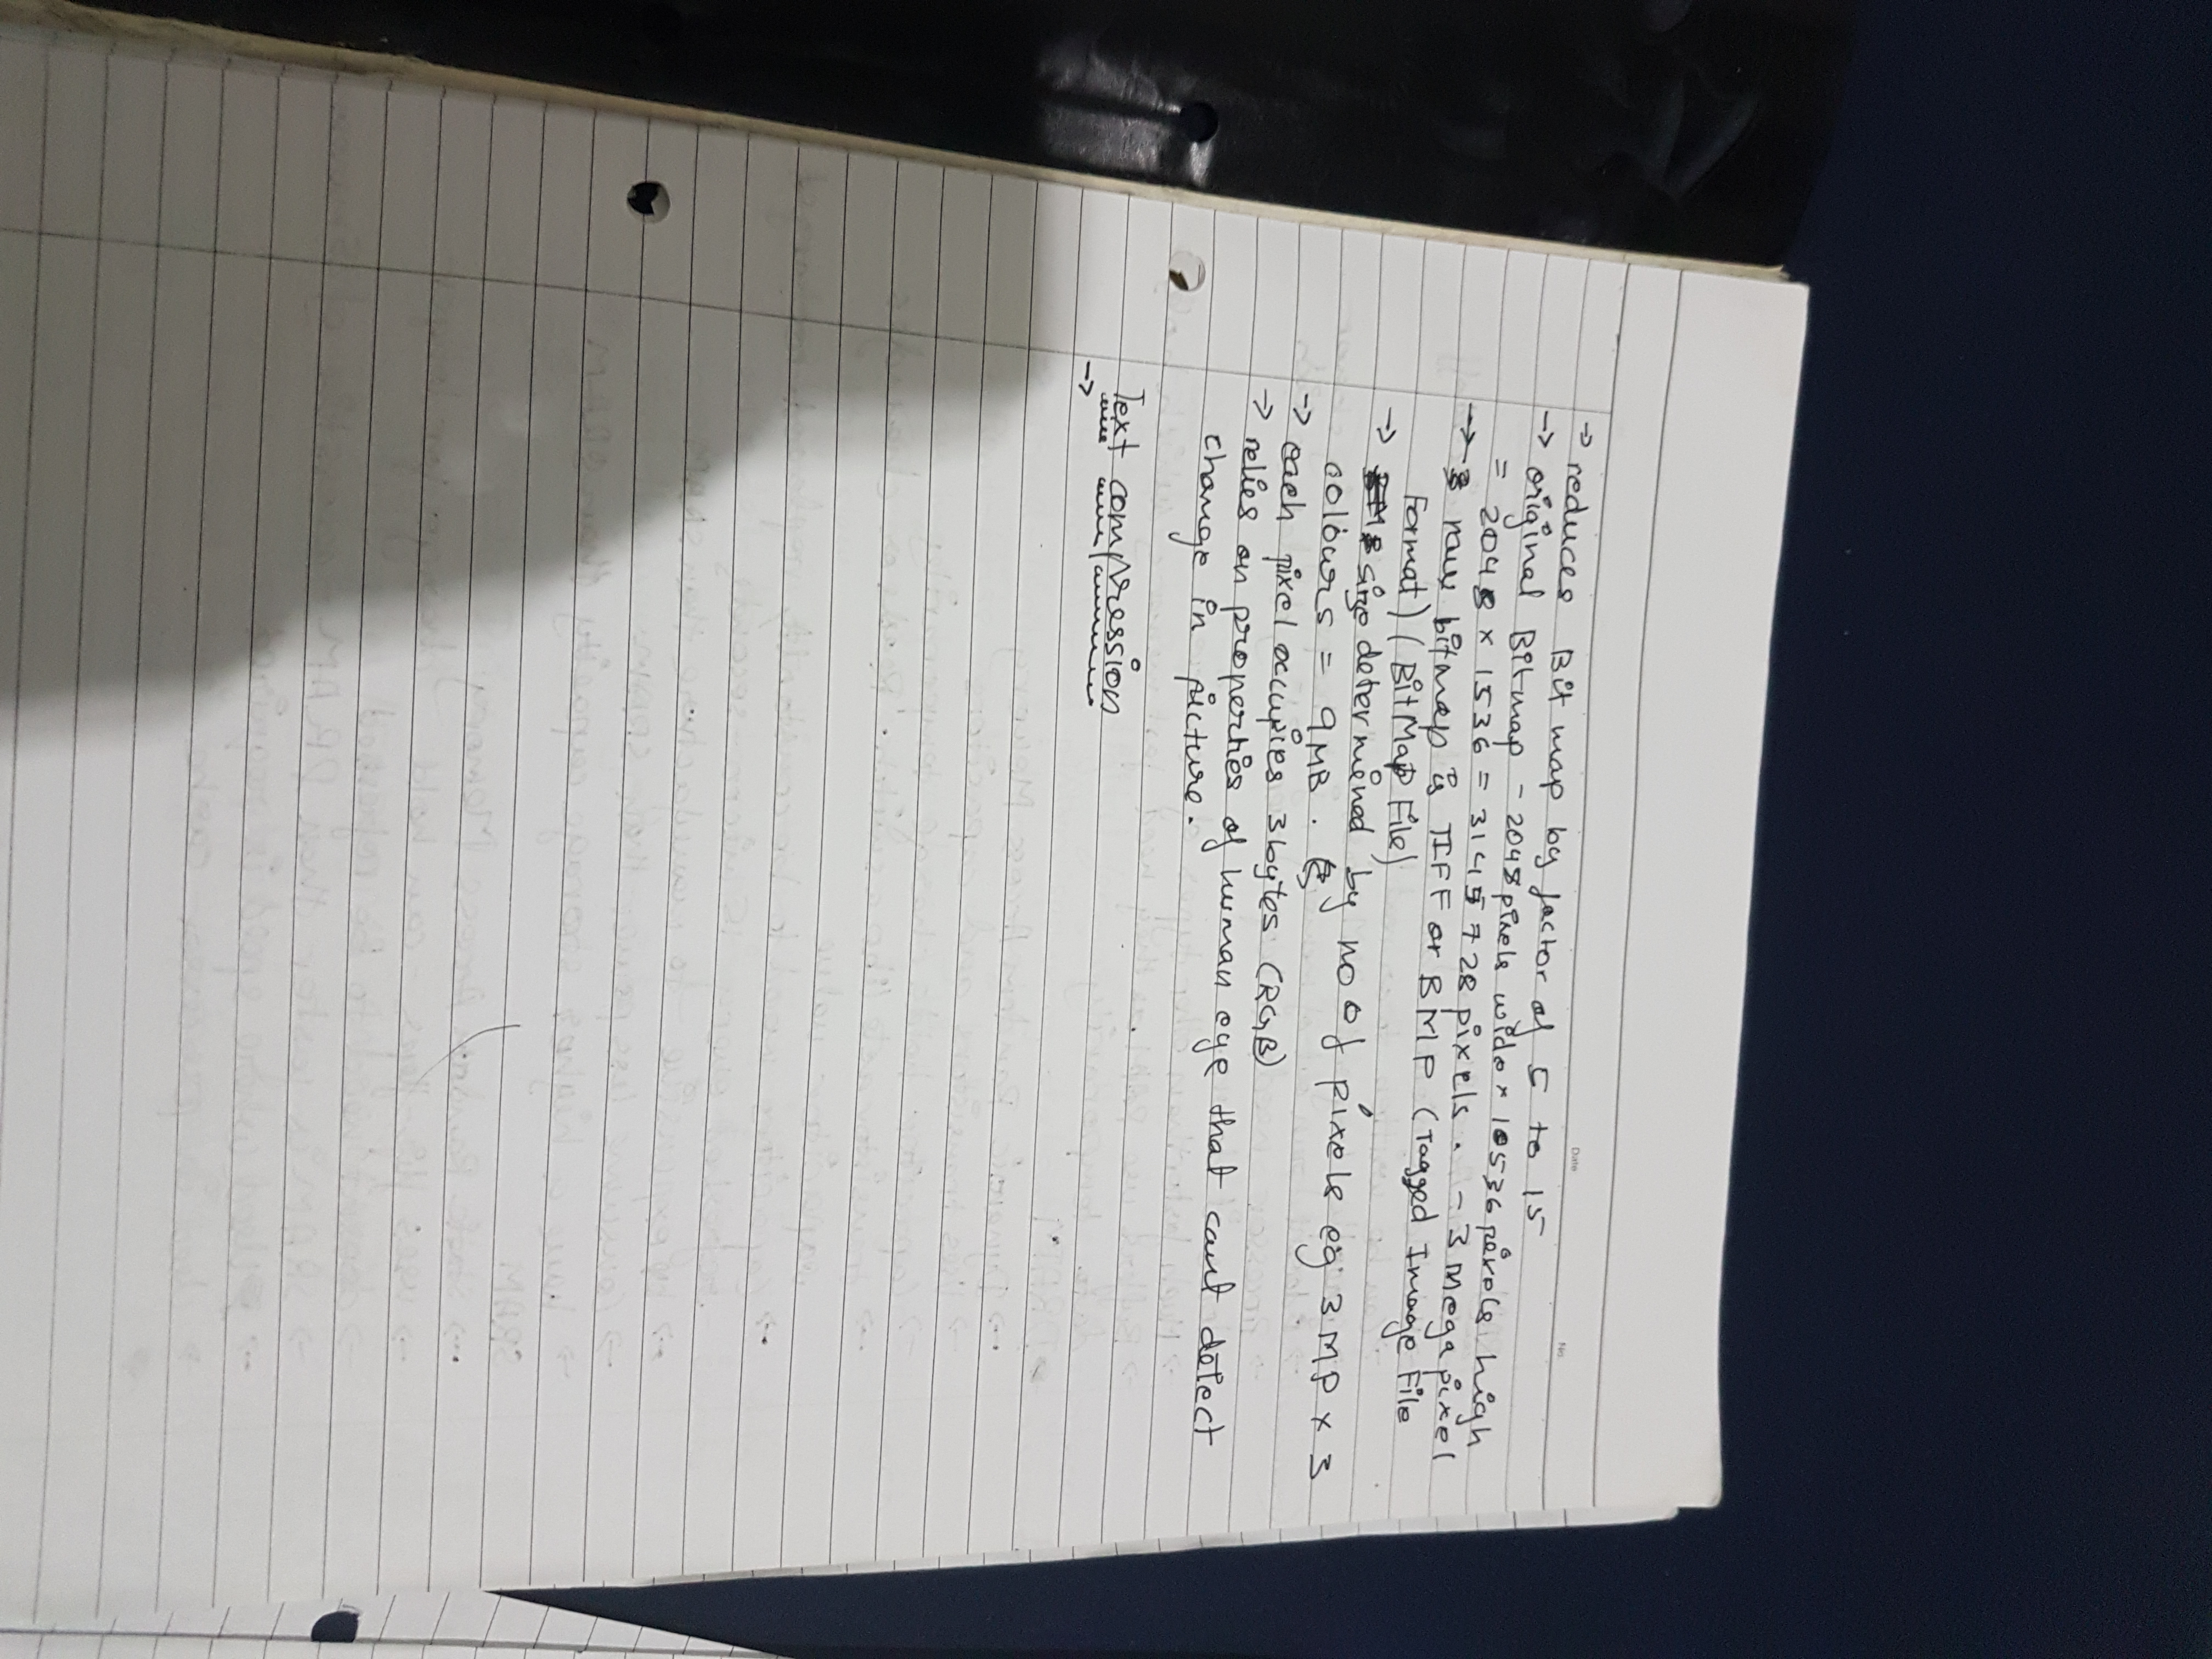 Date
No.
→ reduces Bit map by factor of 5 to 15
→ original Bitmap - 2048 pixels wide × 10536 pixels high
= 2048 × 1536 = 3145728 pixels. - 3 Mega pixel
→ raw bitmap is TIFF or BMP (Tagged Image File
Format) (BitMap File)
→ size determined by no of pixels eg 3MP × 3
colours = 9MB.
→ each pixel occupies 3 bytes (RGB)
→ relies on properties of human eye that cant detect
change in picture.
Text compression
→